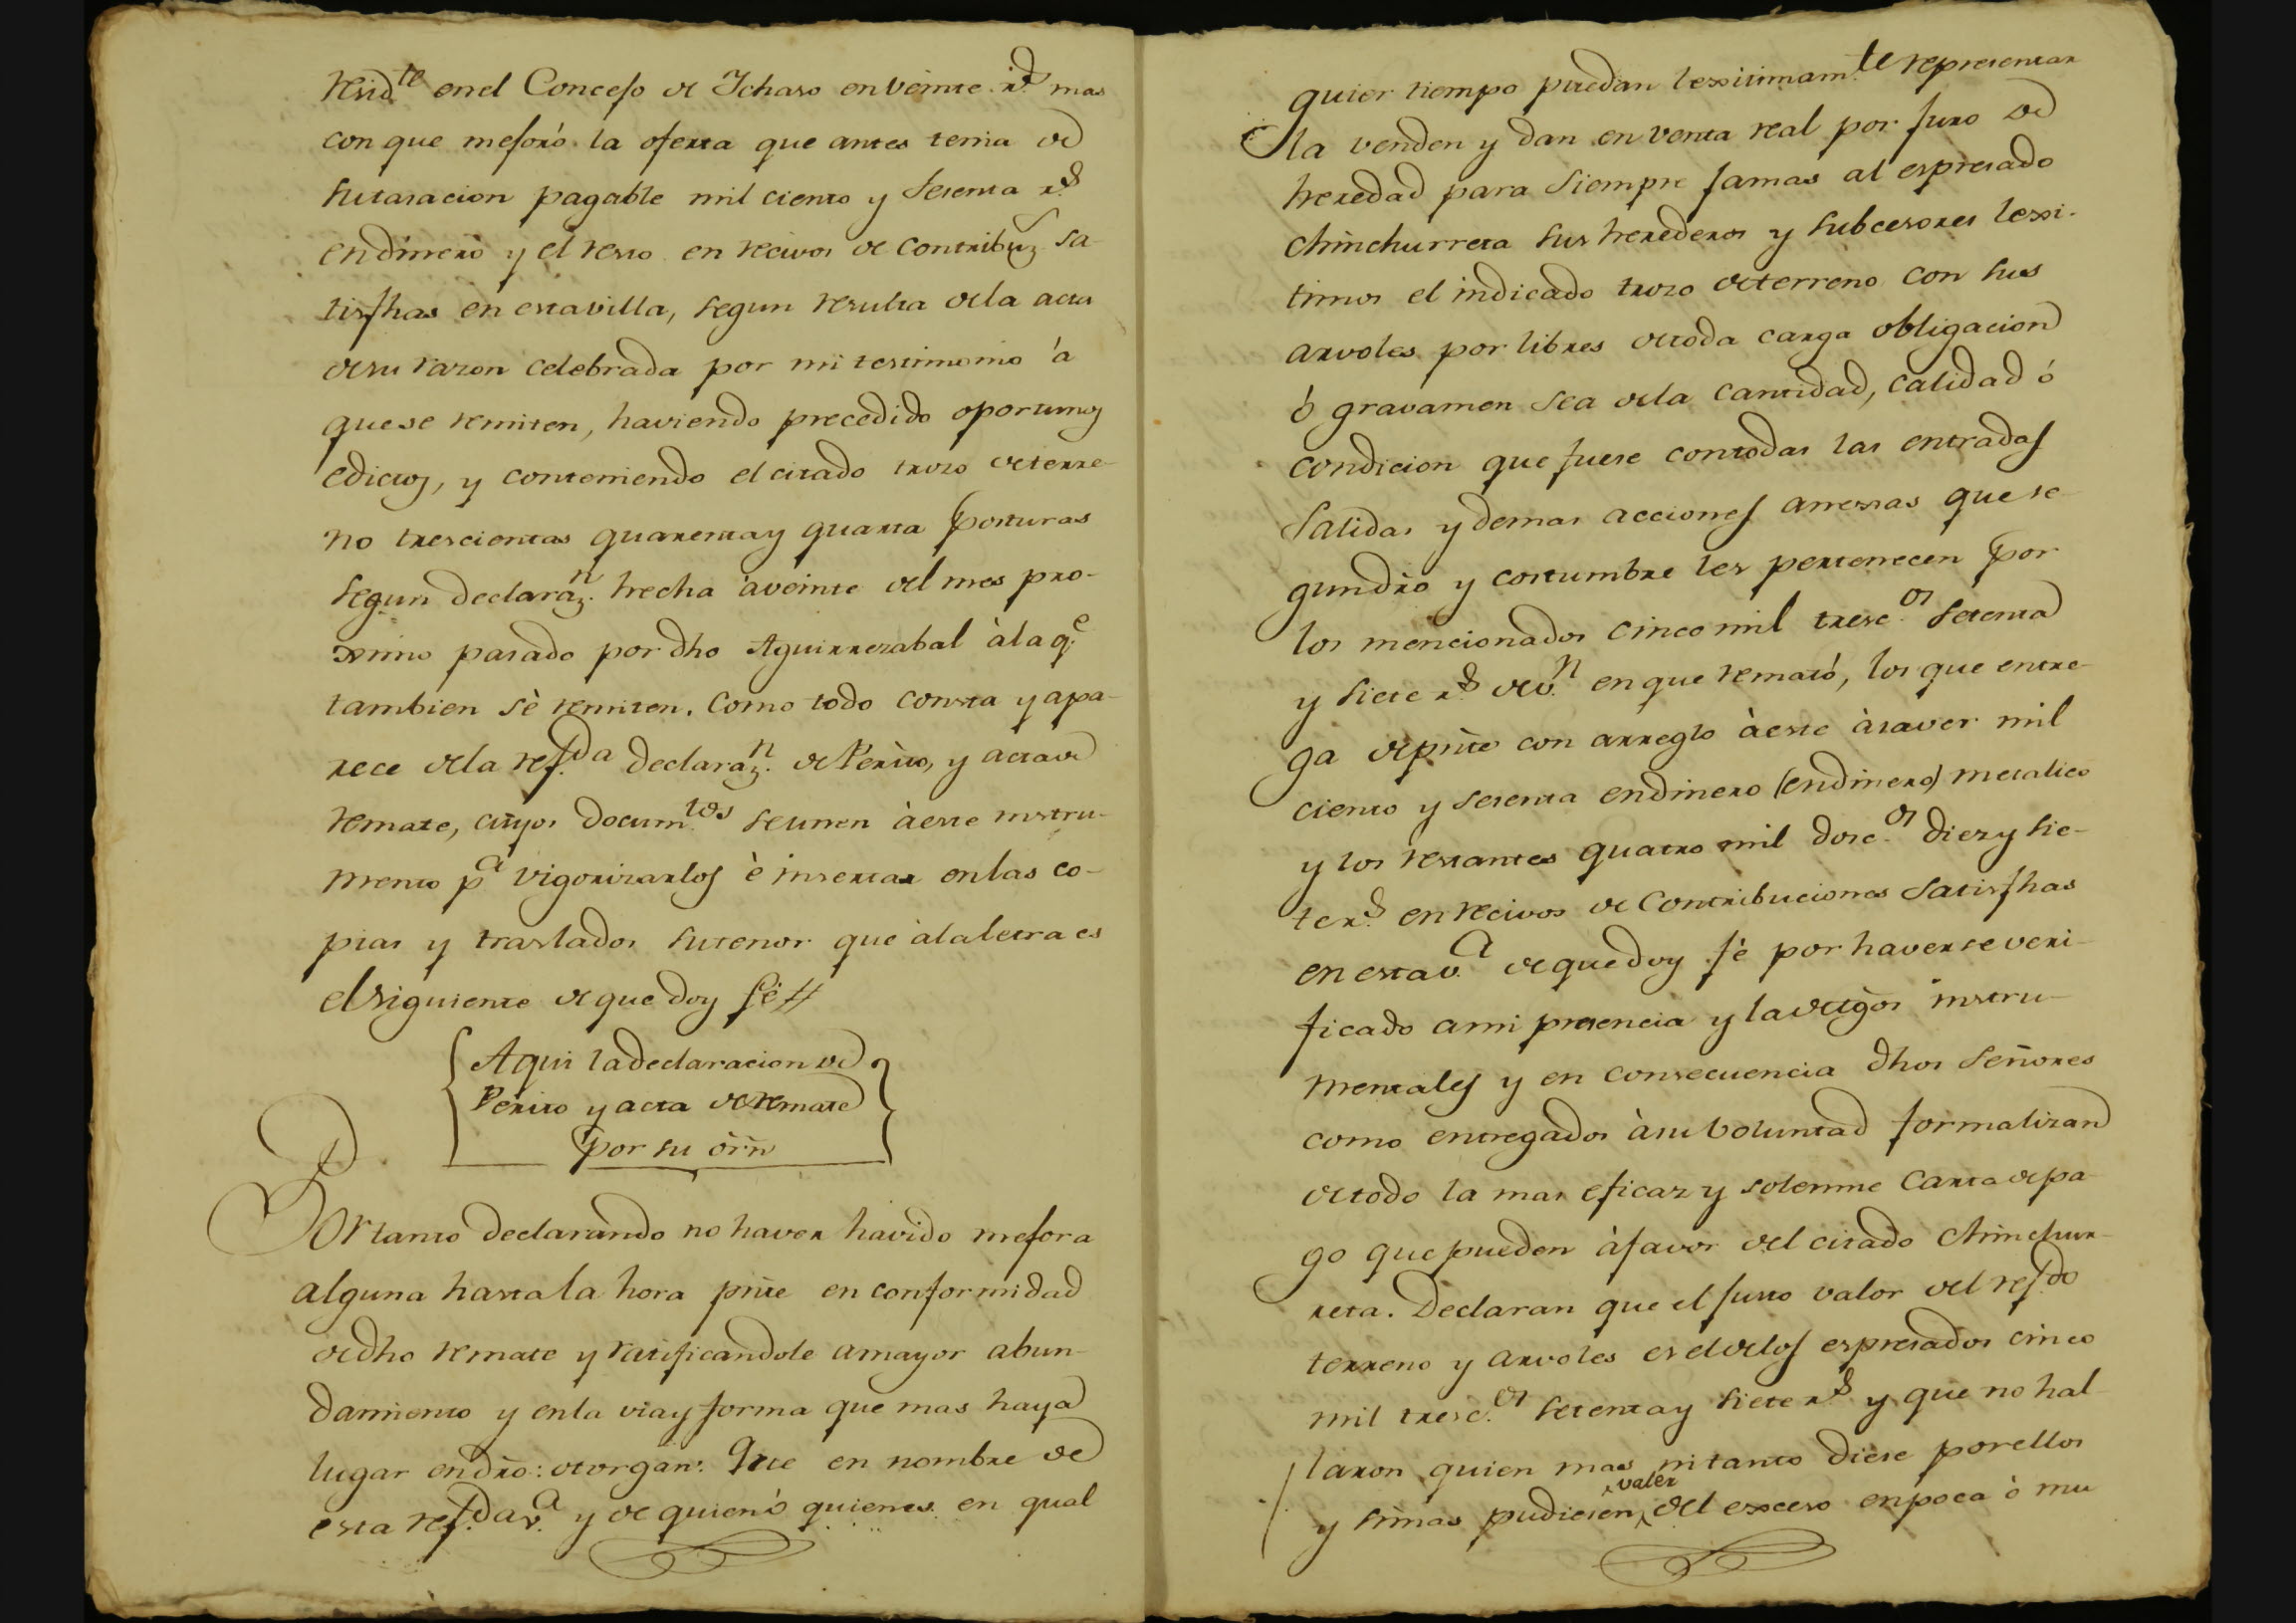 resid.te en el Concejo de Ycharo en veinte r.s mas
con que mejoró la oferta que antes tenia de
su tasacion pagable mil ciento y setenta r.s
en dinero y el resto en recivos de contribuz.s sa-
tisfhas en esta villa, segun resulta de la acta
de su razon celebrada por mi testimonio á
que se remiten, haviendo precedido oportunos
edictos, y conteniendo el citado trozo de terre-
no trescientas quarenta y quatra posturas
segun declaraz.n hecha à veinte del mes pro-
ximo pasado por dho Aguirrezabal à la q.e
tambien sè remiten. Como todo consta y apa-
rece de la ref.da declaraz.n de Perito, y acta de
remate, cuyos docum.tos se unen à este instru-
mento p.a vigorizarlos è insertar en las co-
pias y traslados su tenor que à la letra es
el siguiente de que doy fé //
Aqui la declaracion de
Perito y acta de remate
por su órñ
Por tanto declarando no haver havido mejora
alguna hasta la hora pñte en conformidad
de dho remate y ratificandole a mayor abun-
damiento y en la via y forma que mas haya
lugar en dro: otorgan: Que en nombre de
esta ref.da v.a y de quien ó quienes en qual
quier tiempo puedan lexitimam.te representar
la venden y dan en venta real por juro de
heredad para siempre jamas al espresado
Chinchurreta sus herederos y subcesores lexi-
timos el indicado trozo de terreno con sus
arvoles por libres de toda carga obligacion
ó gravamen sea de la cantidad, calidad ó
condicion que fuese con todas las entradas
salidas y demas acciones anexas que se-
gun dro y costumbre les pertenecen por
los mencionados cinco mil tresc.os setenta
y siete r.s de v.n en que remató, los que entre-
ga de pñte con arreglo à este à saver mil
ciento y setenta en dinero (en dinero) metalico
y los restantes quatro mil dosc.os diez y sie-
te r.s en recivos de Contribuciones satisfhas
en esta v.a de que doy fè por haverse veri-
ficado a mi presencia y la de tgõs instru-
mentales y en consecuencia dhos Señores
como entregados à su voluntad formalizan
de todo la mas eficaz y solemne Carta de pa-
go que pueden à favor del citado Chinchur-
reta. Declaran que el justo valor del ref.do
terreno y arvoles es el de los espresados cinco
mil tresc.os setenta y siete r.s y que no hal-
laron quien mas ni tanto diese por ellos
y si mas pudiesen valer del exceso en poca ó mu